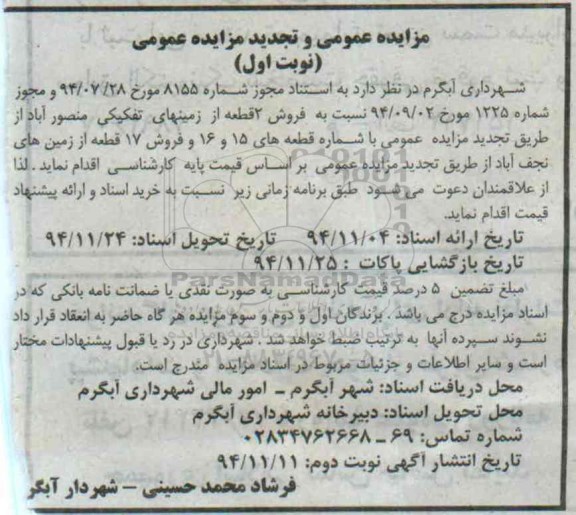 مزایده عمومی و تجدید مزایده عمومی
(نوبت اول)
شهرداری آبگرم در نظر دارد به استناد مجوز شماره ۸۱۵۵ مورخ ۹۴/۰۷/۲۸ و مجوز
شماره ۱۲۲۵ مورخ ۹۴/۰۹/۰۲ نسبت به فروش ۲قطعه از زمینهای تفکیکی منصور آباد از
طریق تجدید مزایده عمومی با شماره قطعه های ۱۵ و ۱۶ و فروش ۱۷ قطعه از زمین های
نجف آباد از طریق تجدید مزایده عمومی بر اساس قیمت پایه کارشناسی اقدام نماید . لذا
از علاقمندان دعوت می شود طبق برنامه زمانی زیر نسبت به خرید اسناد و ارائه پیشنهاد
قیمت اقدام نماید.
تاریخ ارائه اسناد: ۹۴/۱۱/۰۴ تاریخ تحویل اسناد: ۹۴/۱۱/۲۴
تاریخ بازگشایی پاکات : ۹۴/۱۱/۲۵
ParsNamadData
مبلغ تضمین ۵ درصد قیمت کارشناسی به صورت نقدی یا ضمانت نامه بانکی که در
اسناد مزایده درج می باشد . برندگان اول و دوم و سوم مزایده هر گاه حاضر به انعقاد قرار داد
نشوند سپرده آنها به ترتیب ضبط خواهد شد . شهرداری در رد یا قبول پیشنهادات مختار
است و سایر اطلاعات و جزئیات مربوط در اسناد مزایده مندرج است.
محل دریافت اسناد: شهر آبگرم – امور مالی شهرداری آبگرم
محل تحویل اسناد: دبیرخانه شهرداری آبگرم
شماره تماس: ۶۹ – ۰۲۸۳۴۷۶۲۶۶۸
تاریخ انتشار آگهی نوبت دوم: ۹۴/۱۱/۱۱
فرشاد محمد حسینی – شهردار آبگر